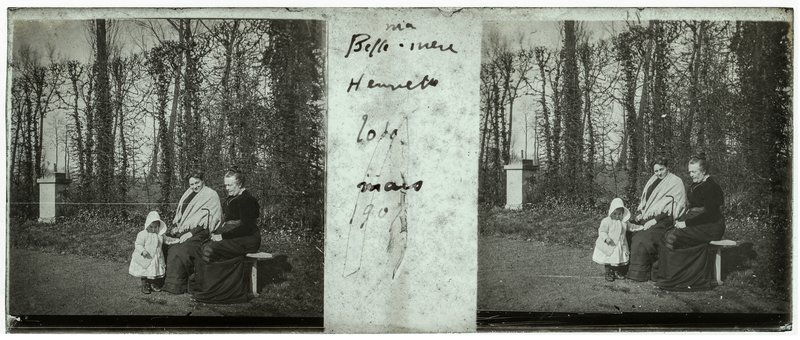 ma
Belle-mere
Henriette
Lolo
mars
190